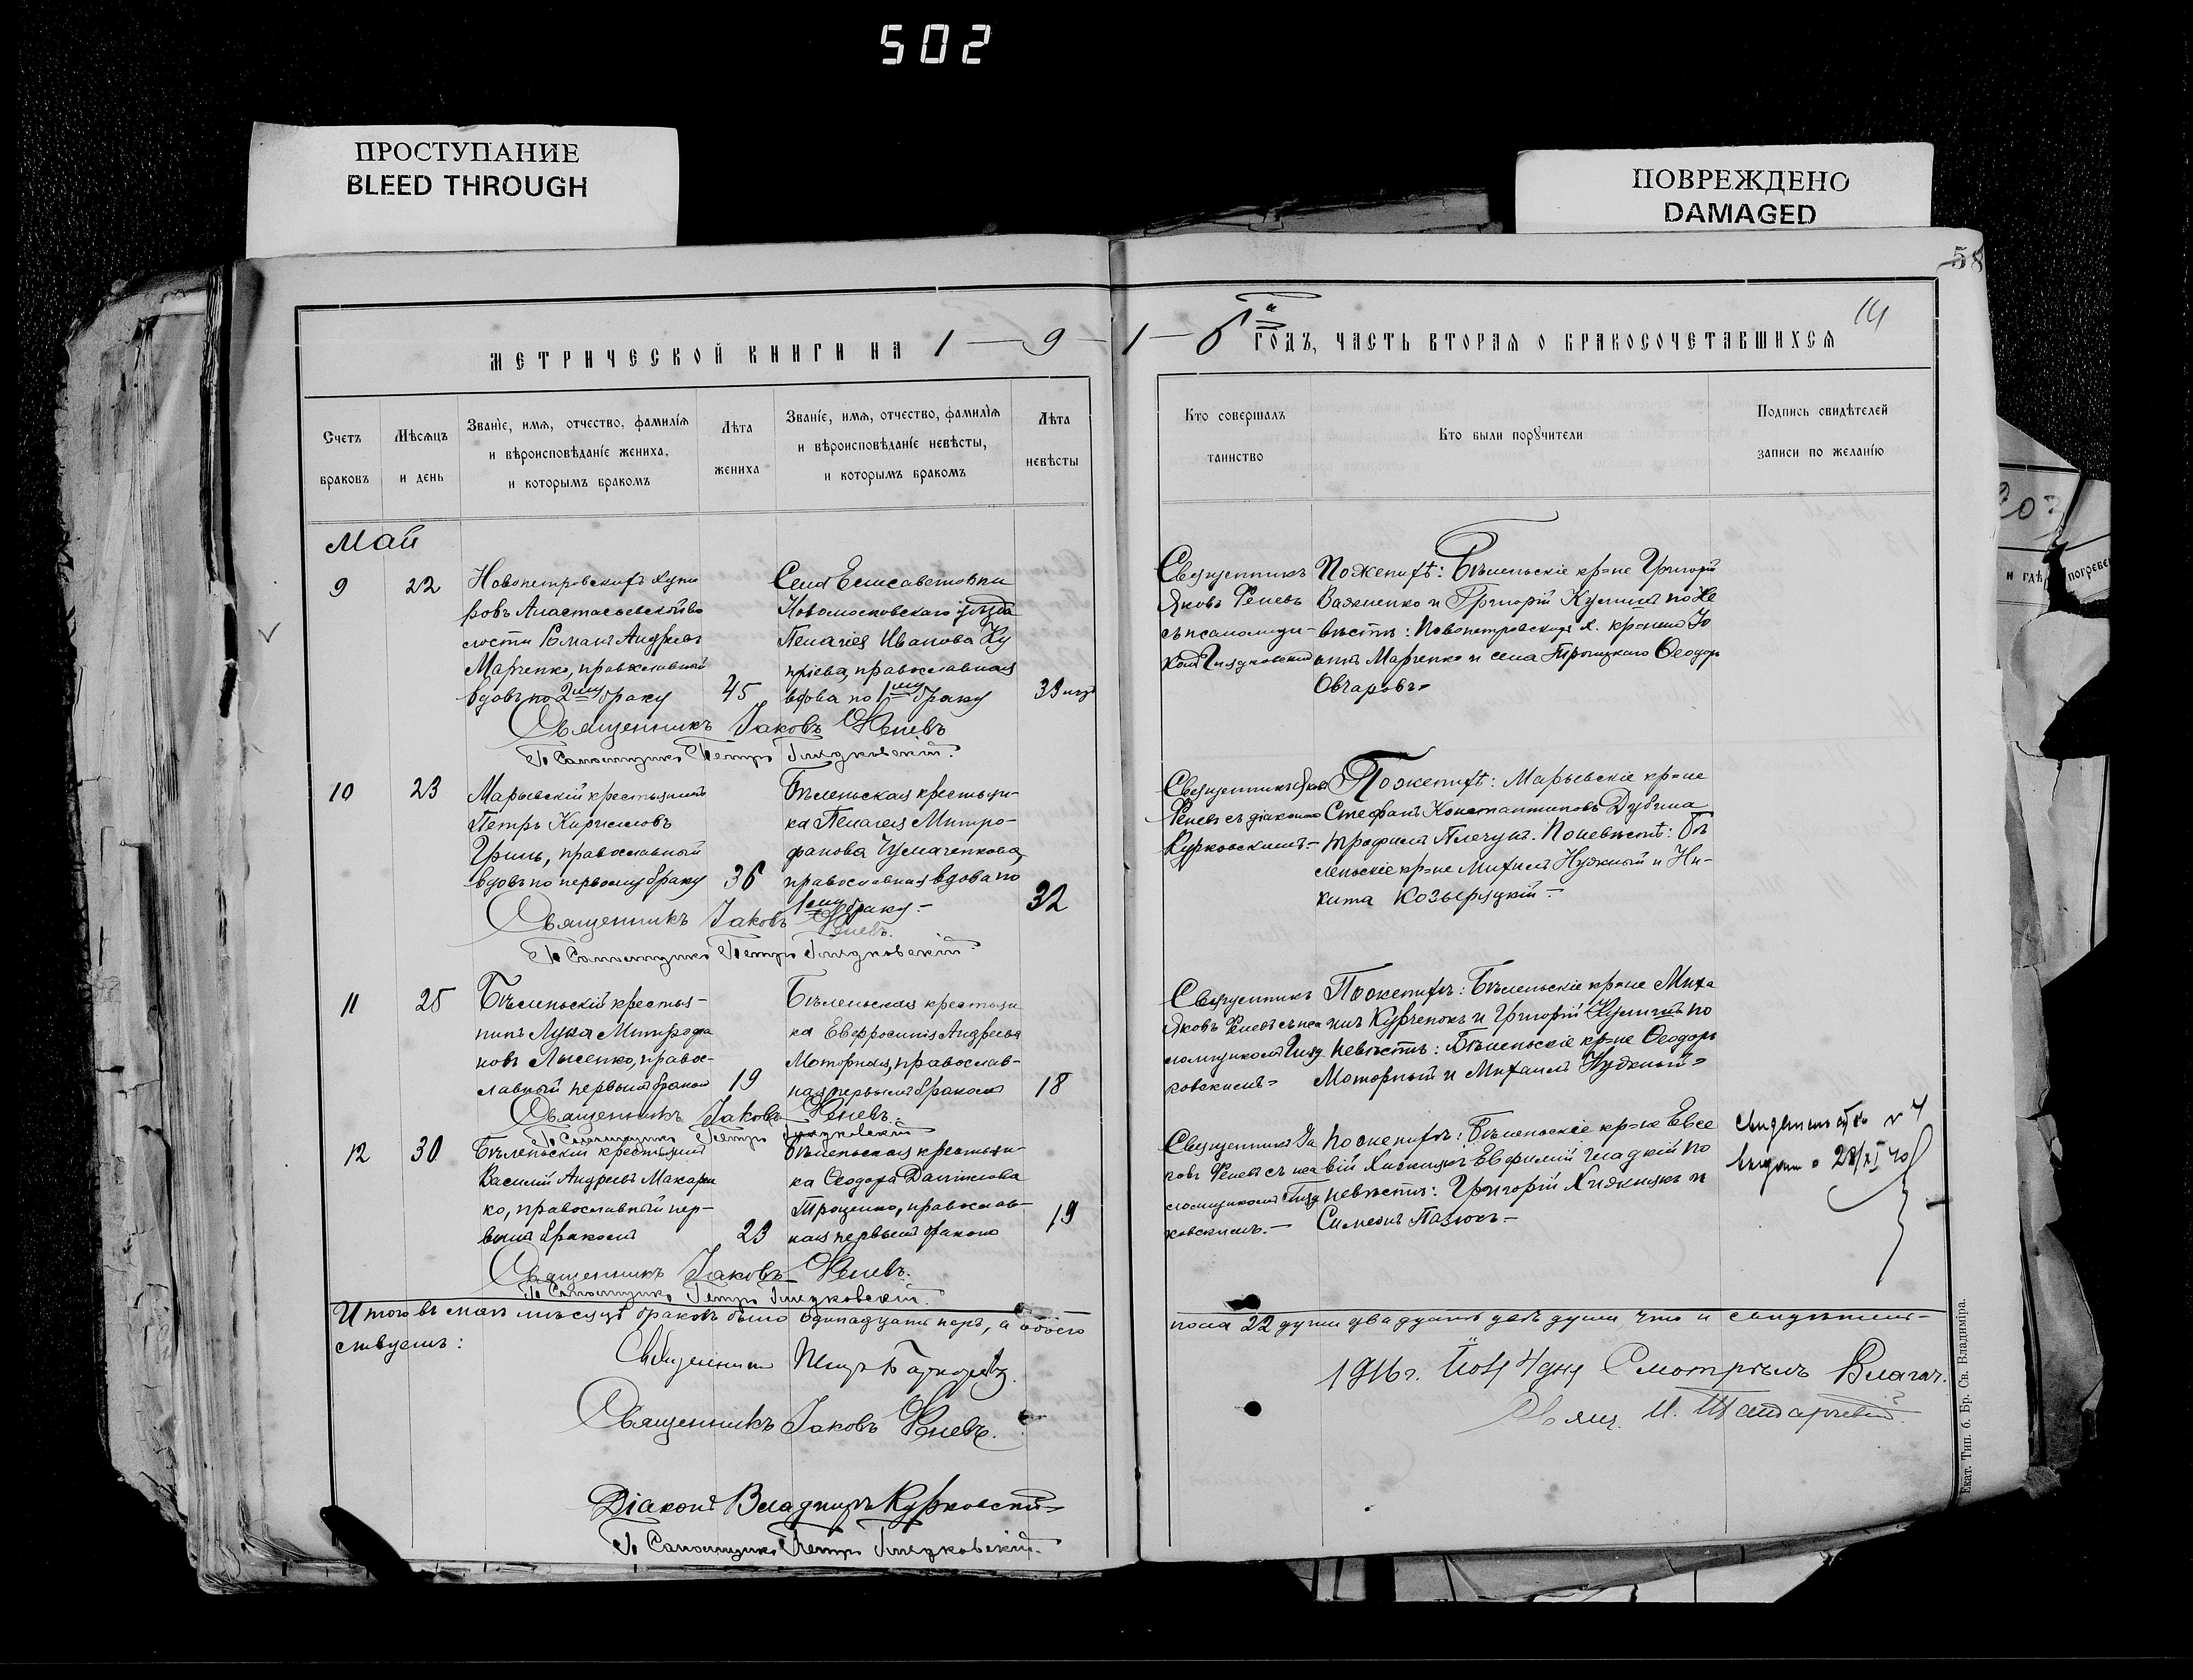 502
ПРОСТУПАНИЕ
BLEED THROUGH
ПОВРЕЖДЕНО
DAMAGED
58
14
МЕТРИЧЕСКОЙ КНИГИ НА 1 — 9 — 1 — 6 й ГОДЪ, ЧАСТЬ ВТОРАЯ О БРАКОСОЧЕТАВШИХСЯ
Счетъ
браковъ
Мѣсяцъ
и день
Званіе, имя, отчество, фамилія
и вѣроисповѣданіе жениха,
и которымъ бракомъ
Лѣта
жениха
Званіе, имя, отчество, фамилія
и вѣроисповѣданіе невѣсты,
и которымъ бракомъ
Лѣта
невѣсты
Кто совершалъ
таинство
Кто были поручители
Подпись свидѣтелей
записи по желанію
Май
9
22
Новопетровскихъ хуто
ровъ Анастасьевской во
лости Романъ Андреевъ
Марченко, православный
вдовъ по 2му браку
45
Села Елисаветовки
Новомосковскаго уѣзда
Пелагея Иванова Ку
пріева, православная
вдова по 1му браку
39
Священникъ
Яковъ Феневъ
съ псаломщи-
комъ
Поженихѣ: Бѣленьскіе кр=не Григорій
Важненко и Григорій Кулишъ по не
вѣстѣ: Новопетровских х.
Марченко и села Троицкаго Ѳеодоръ
Овчаровъ=
Священникъ Іаковъ Феневъ
Псаломщикъ Петръ
10
23
Марьевскій крестьянинъ
Петръ Кирилловъ
Гринь, православный
вдовъ по первому браку
36
Бѣленьская крестьян-
ка Пелагея Митро-
фанова Чумаченкова,
православная вдова по
1му браку.-
32
Священникъ Яковъ
Феневъ съ діакономъ
Курковскимъ.-
Поженихѣ: Марьевскіе кр=не
Стефанъ Константиновъ Дубина
Трофимъ Плечунъ. Поневѣстѣ: Бѣ
леньскіе кр=не Михаилъ Нужный и Ни-
кита Козыряцкій.-
Священникъ Іаковъ Феневъ.
Псаломщикъ Петръ
11
25
Бѣленьскій крестья-
нинъ Лука Митрофа
новъ Лысенко, правос-
лавный первымъ бракомъ
19
Бѣленьская крестьян
ка Евфросинія Андреева
Моторная, православ-
ная первымъ бракомъ
18
Священникъ
Яковъ Феневъ съ пса
ломщикомъ
ковскимъ=
Поженихѣ: Бѣленьскіе кр=не Миха
илъ Курченокъ и Григорій Кулишъ по
невѣстѣ: Бѣленьскіе кр=не Ѳеодоръ
Моторный и Михаилъ Нужный=
Священникъ Іаковъ Феневъ.
Псаломщикъ Петръ
12
30
Бѣленьскій крестьянинъ
Василій Андреевъ Макарен
ко, православный пер-
вымъ бракомъ
23
Бѣленьская крестьян-
ка Ѳеодора Даніилова
Троценко, православ-
ная первымъ бракомъ
19
Священникъ Іа
ковъ Феневъ съ пса
ломщикомъ
ковскимъ.-
Поженихѣ: Бѣленьскіе кр=не Евсе
вій Хижнякъ Евфимій Гладкій по
невѣстѣ: Григорій Хижнякъ и
Симеонъ Пазюкъ-
Священникъ Іаковъ Феневъ.
Псаломщикъ Петръ
Итого въ маѣ мѣсяцѣ браковъ было одинадцать паръ, а обоего
пола 22 души двадцать двѣ души что и свидѣтель-
ствуемъ:
Священникъ
Священникъ Іаковъ Феневъ.
Діаконъ Владиміръ Курковскій=
Псаломщикъ Петръ
1916г. Іюня 4 дня Смотрѣлъ Благоч.
Свящ. И.
Екат. Тип. б. Бр. Св. Владиміра.
и гдѣ погребе